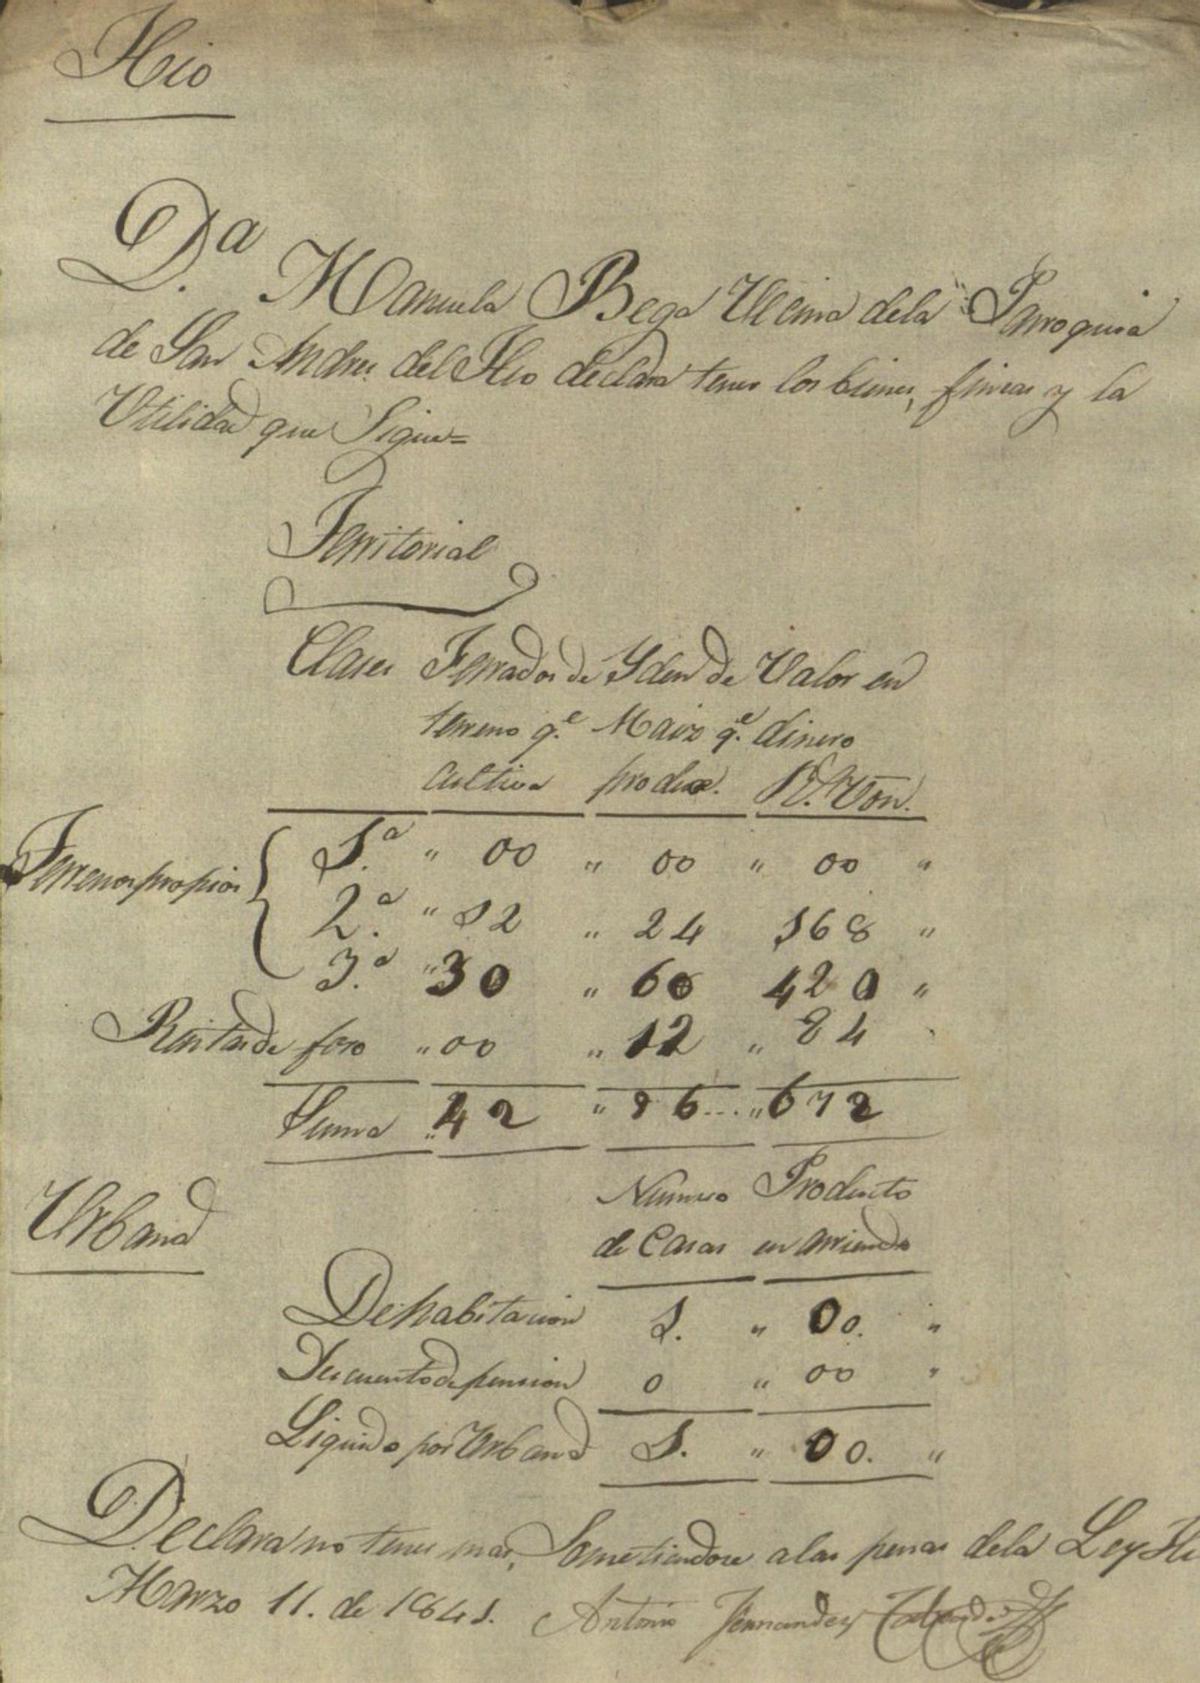 Hio
D.ª Manuela Bega Vecina dela Parroquia
de San Andres del Hio declara tener los bienes, fincas y la
Utilidad que Sigue=
Territorial
Clases Ferrados de Yden de Valor en
terreno q.e Maiz q.e dinero
cultiva produce. Rs. Von.
Terrenos propios { 1.ª " 00 " 00 " 00 "
2.ª " 12 " 24 168 "
3.ª " 30 " 60 420 "
Rentas de foro " 00 " 12 " 84
Suma " 42 " 96 ... " 672
Urbana
Numero Producto
de Casas en arriendo
De habitacion 1. " 00. "
Descuento de pension 0 " 00 "
Liquido por Urbana 1. " 00. "
Declara no tener mas, Sometiendose a las penas dela Ley Hio
Marzo 11. de 1841. Antonio Fernandez